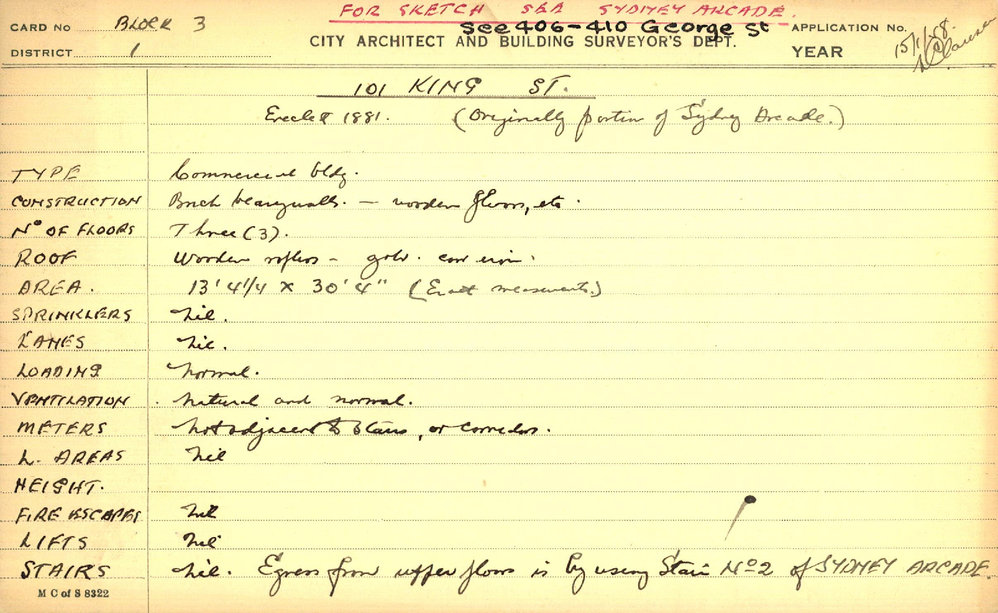 FOR SKETCH SEE SYDNEY ARCADE.
CARD No BLOCK 3 See 406-410 George St APPLICATION No.
DISTRICT 1 CITY ARCHITECT AND BUILDING SURVEYOR'S DEPT. YEAR 15/1/58
101 KING ST.
Erected 1881. (Originally portion of Sydney Arcade.)
TYPE Commercial bldg.
CONSTRUCTION Brick bearing walls. — wooden floors, etc.
No OF FLOORS Three (3).
ROOF Wooden rafters - galv. corr iron.
AREA. 13' 4 1/4 x 30' 4" (Exact measurements.)
SPRINKLERS Nil.
LANES Nil.
LOADING Normal.
VENTILATION Natural and normal.
METERS Not adjacent to stairs, or corridors.
L. AREAS Nil
HEIGHT.
FIRE ESCAPES Nil
LIFTS Nil
STAIRS Nil. Egress from upper floors is by using Stair No 2 of SYDNEY ARCADE.
M C of S 8322